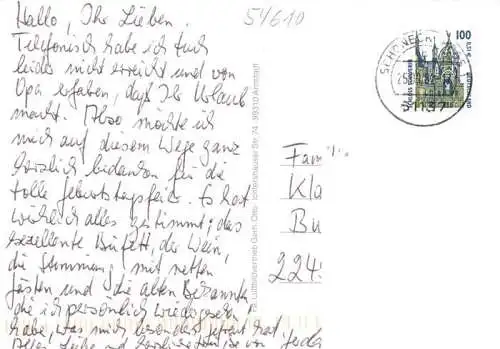 Hallo, Ihr Lieben.
Telefonisch habe ich Euch
leider nicht erreicht und von
Opa erfahren, daß Ihr Urlaub
macht. Also möchte ich
mich auf diesem Wege ganz
herzlich bedanken für die
tolle Geburtstagsfeier. Es hat
wirklich alles gestimmt; das
exzellente Büfett, der Wein,
die Stimmung mit netten
Gästen und die alten Bekannten
die ich persönlich wiedergesehen
habe, was mich besonders gefreut hat.
Alles Liebe und von
54/610
100
0,51 €
Fam
Kla
Bu
224
99310 Arnstadt